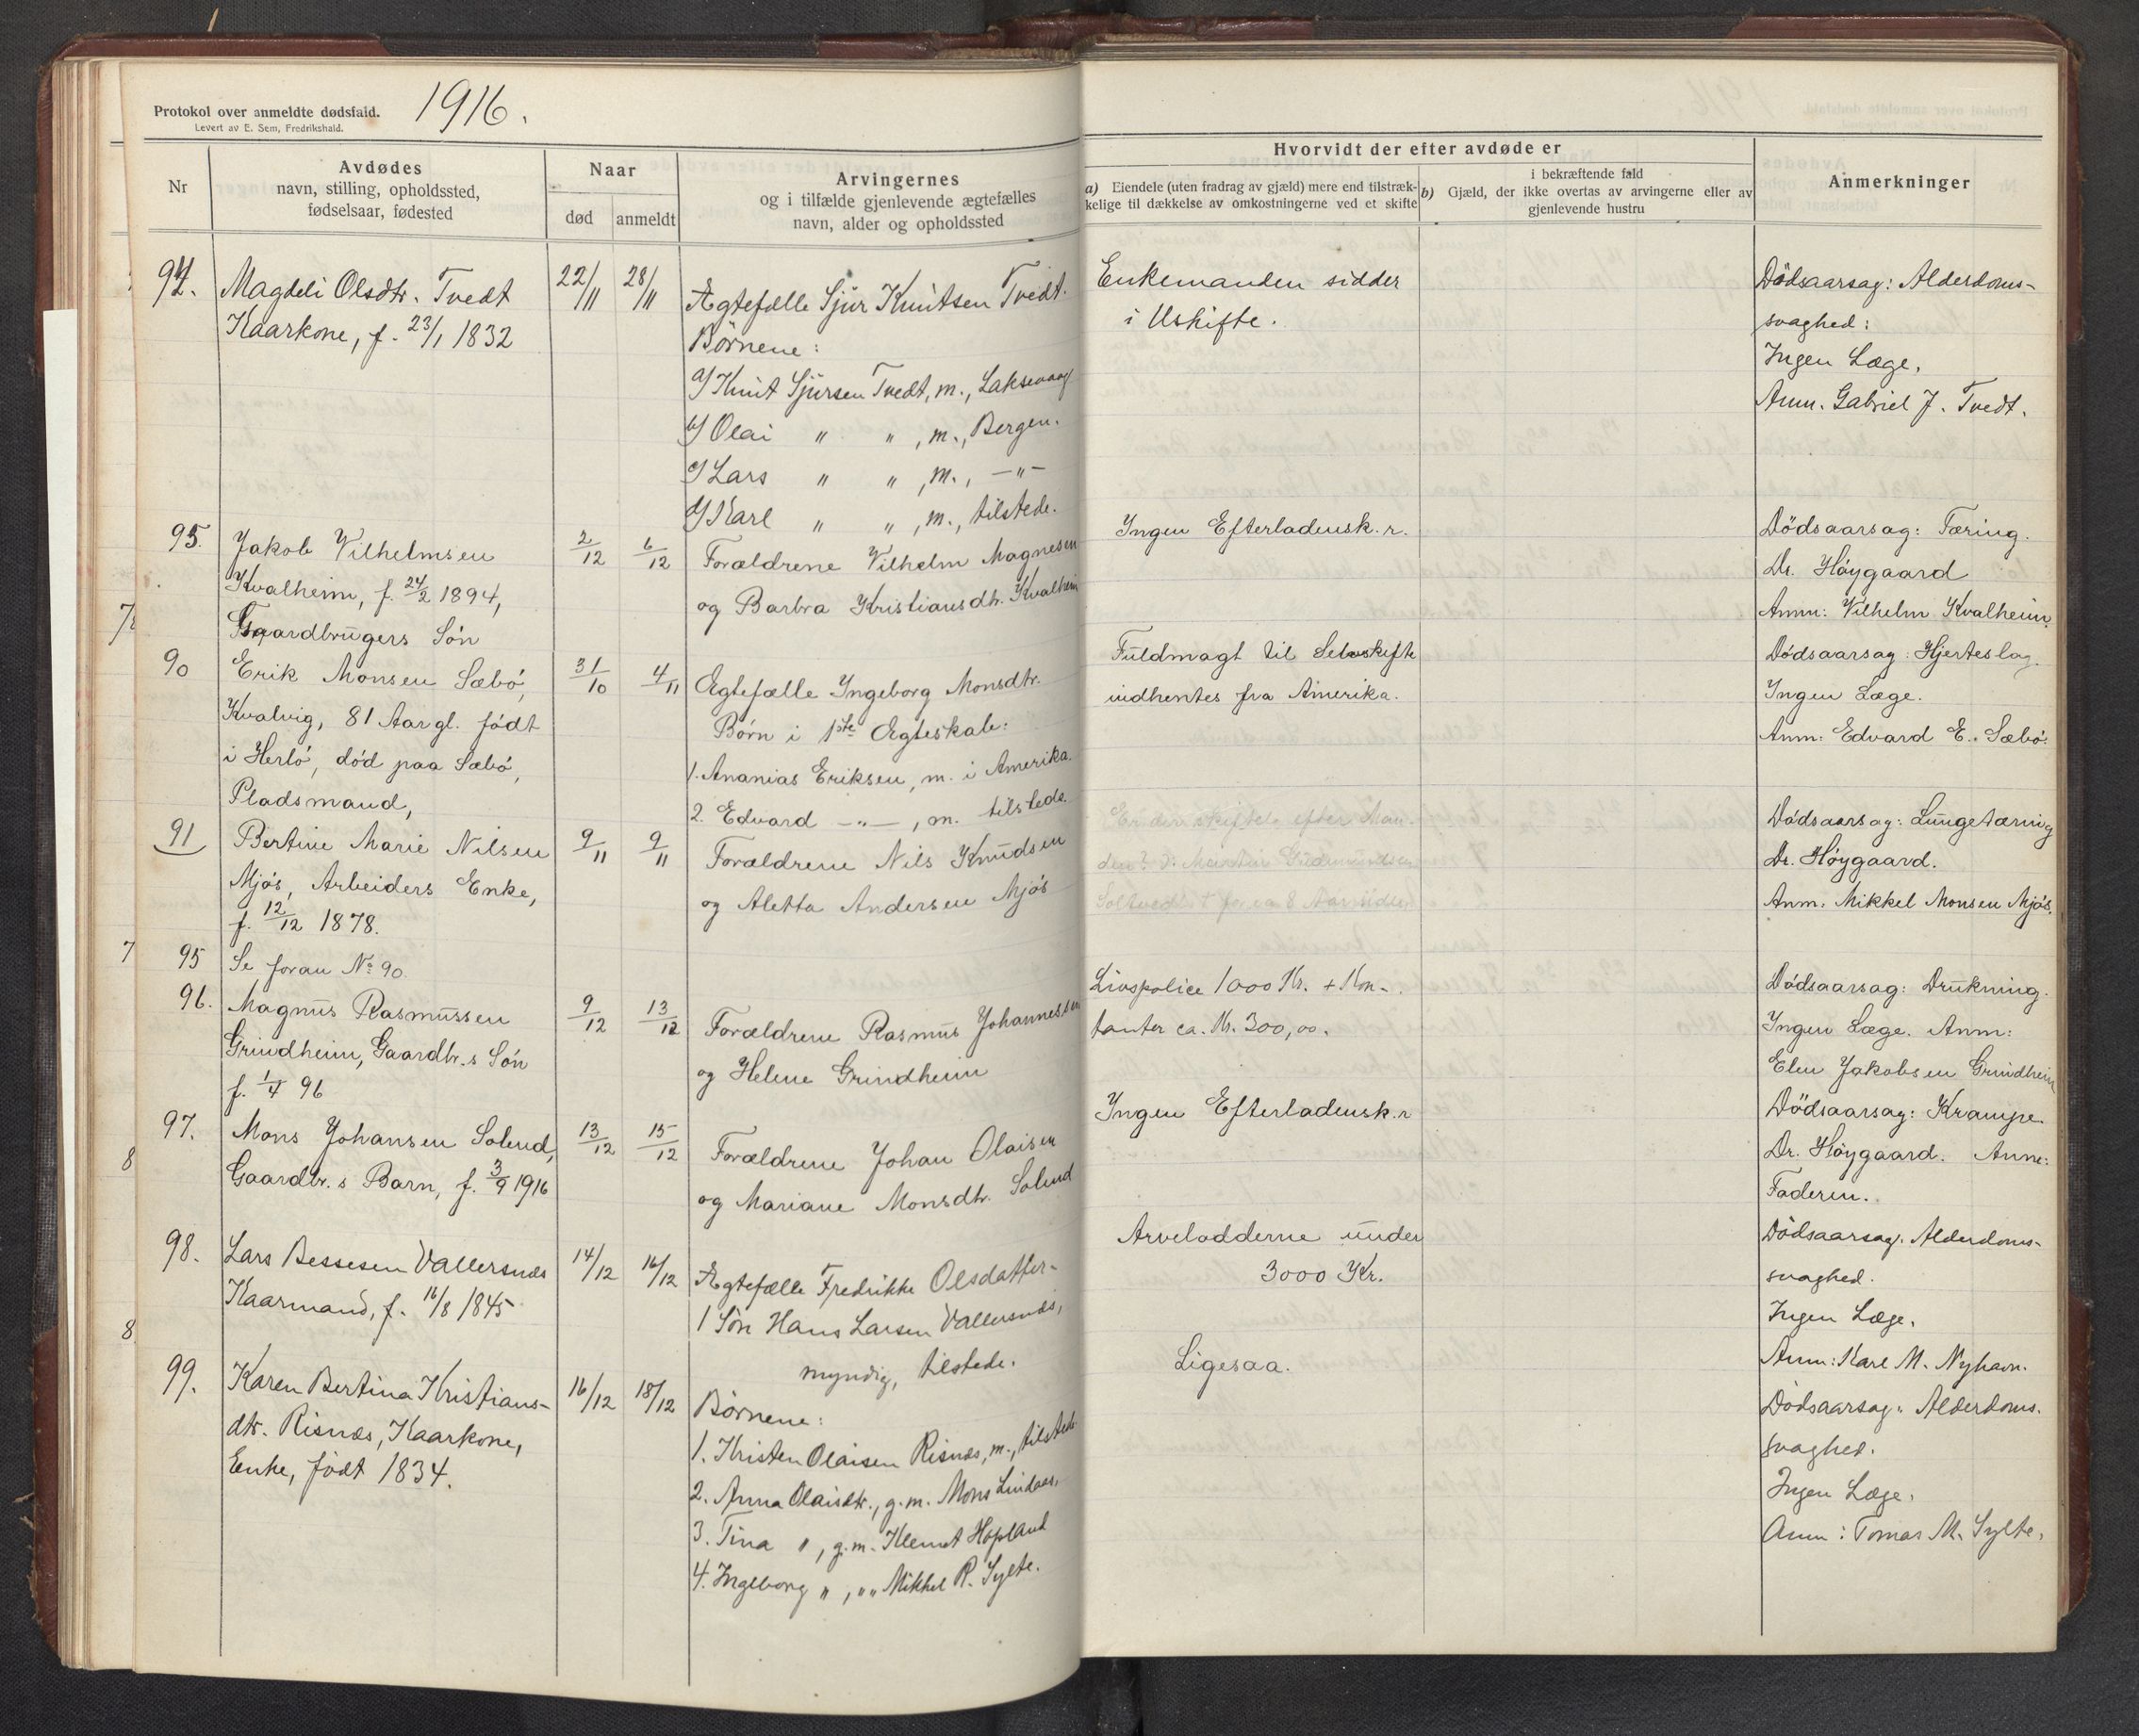 Protokol over anmeldte dødsfald. 1916.
Levert av E. Sem, Fredrikshald.
Nr
Avdødes
navn, stilling, opholdssted,
fødselsaar, fødested
Naar
død
anmeldt
Arvingernes
og i tilfælde gjenlevende ægtefælles
navn, alder og opholdssted
Hvorvidt der efter avdøde er
a) Eiendele (uten fradrag av gjæld) mere end tilstræk-
kelige til dækkelse av omkostningerne ved et skifte
i bekræftende fald
b) Gjæld, der ikke overtas av arvingerne eller av
gjenlevende hustru
Anmerkninger
94. Magdeli Olsdtr. Tvedt
Kaarkone, f. 23/1 1832
22/11 28/11
Ægtefælle Sjur Knutsen Tvedt.
Børnene:
a/ Knut Sjursen Tvedt, m., Laksevaag
b/ Olai " " , m., Bergen.
c/ Lars " " , m., —"—
d/ Karl " " , m., tilstede.
Enkemanden sidder
i Uskifte.
Dödsaarsag: Alderdoms-
svaghed:
Ingen Læge.
Anm. Gabriel J. Tvedt.
95. Jakob Vilhelmsen
Kvalheim, f. 24/2 1894,
Gaardbrugers Søn
2/12 6/12
Forældrene Vilhelm Magnesen
og Barbra Kristiansdtr. Kvalheim
Ingen Efterladensk.r.
Dödsaarsag: Tæring.
Dr. Höygaard
Anm: Vilhelm Kvalheim.
90 Erik Monsen Sæbö,
Kvalvig, 81 Aar gl. født
i Herlö, död paa Sæbö,
Pladsmand,
31/10 4/11
Ægtefælle Ingeborg Monsdtr.
Börn i 1ste Ægteskab:
1. Ananias Eriksen, m. i Amerika.
2. Edvard —"— , m. tilstede.
Fuldmagt til Selvskifte
indhentes fra Amerika.
Dödsaarsag: Hjerteslag.
Ingen Læge.
Anm: Edvard E. Sæbö.
91 Bertine Marie Nilsen
Mjös, Arbeiders Enke,
f. 12/12 1878.
9/11 9/11
Forældrene Nils Knudsen
og Aletta Andersen Mjös
Er der skiftet efter Man-
den?
for ca 8 Aar siden
Dödsaarsag: Lungetæring
Dr. Höygaard.
Anm. Mikkel Monsen Mjös.
95 Se foran No 90.
96. Magnus Rasmussen
Grindheim, Gaardbr.s Sön
f. 1/4 96
9/12 13/12
Forældrene Rasmus Johannessen
og Helene Grindheim
Livspolice 1000 Kr. + Kon-
tanter ca. Kr. 300,00.
Dödsaarsag: Drukning.
Ingen Læge. Anm:
Elen Jakobsen Grindheim
97. Mons Johansen Solend,
Gaardbr.s Barn, f. 3/9 1916
13/12 15/12
Forældrene Johan Olaisen
og Mariane Monsdtr. Solend
Ingen Efterladensk.r
Dödsaarsag: Krampe
Dr. Höygaard. Anm:
Faderen.
98. Lars Bessesen Vallersnæs
Kaarmand, f. 16/8 1845
14/12 16/12
Ægtefælle Fredrikke Olsdatter-
1 Søn Hans Larsen Vallersnæs,
myndig, tilstede.
Arvelodderne under
3000 Kr.
Dödsaarsag: Alderdoms-
svaghed.
Ingen Læge.
Anm: Karl M. Nyhavn.
99. Karen Bertina Kristians-
dtr. Risnæs, Kaarkone,
Enke, født 1834.
16/12 18/12
Børnene:
1. Kristen Olaisen Risnæs, m., tilstede.
2. Anna Olaisdtr., g.m. Mons Lindaas.
3. Tina " , g.m. Klemet Hopland
4. Ingeborg " , " " Mikkel R. Sylte.
Ligesaa.
Dödsaarsag: Alderdoms.
svaghed.
Ingen Læge.
Anm: Tomas M. Sylte.